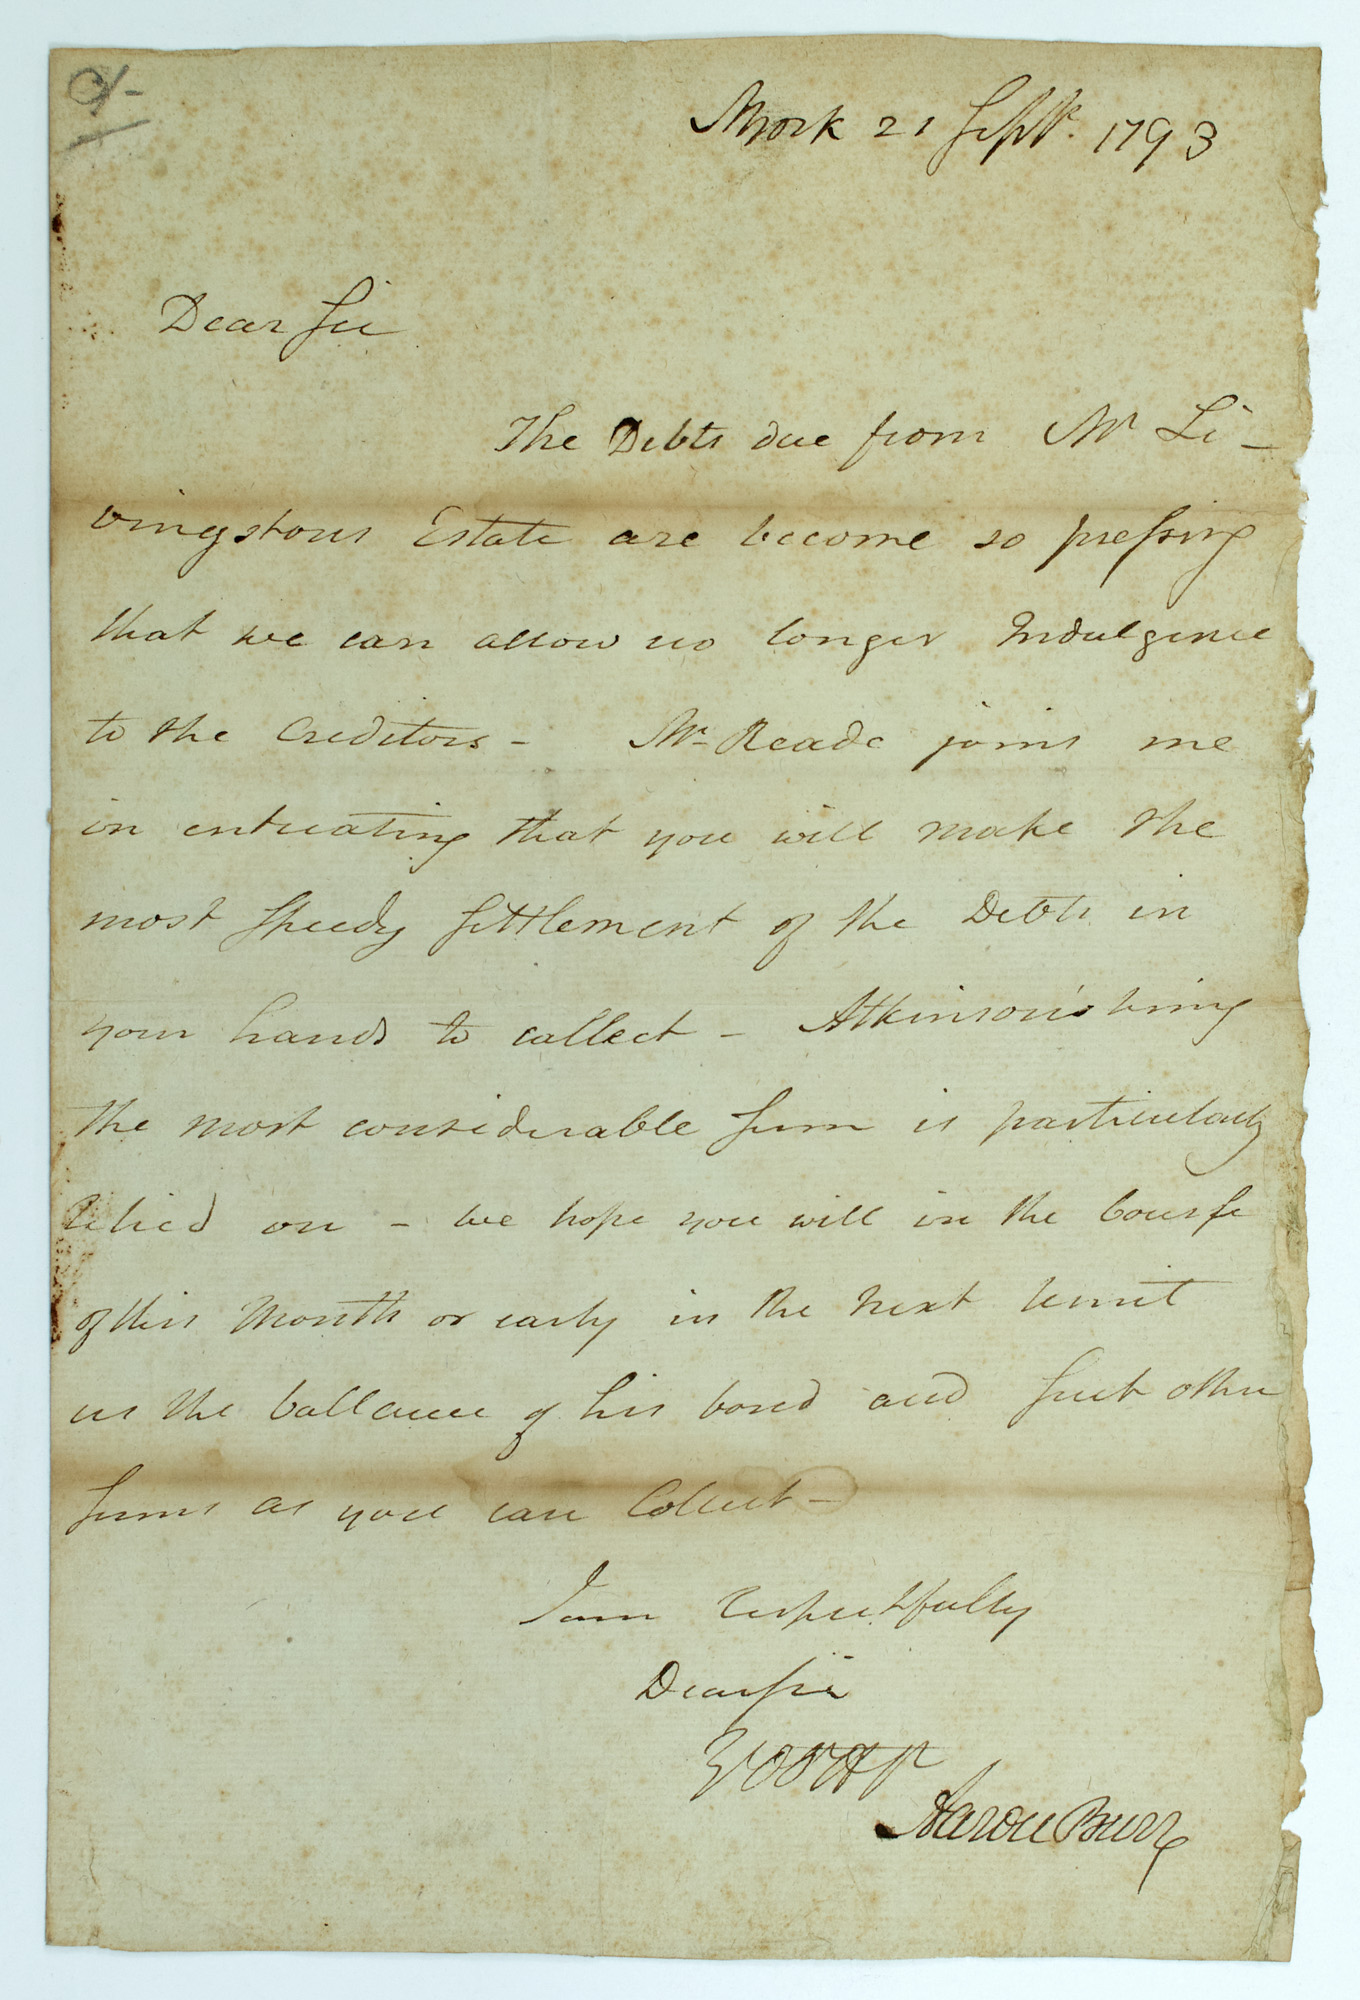 NYork 21 Sept. 1793
Dear Sir
The Debts due from Mr Li-
vingstons Estate are become so pressing
that we can allow no longer Indulgence
to the Creditors - Mr Reade joins me
in entreating that you will make the
most speedy settlement of the Debts in
your hands to collect - Atkinson's being
the most considerable sum is particularly
relied on - we hope you will in the Course
of this Month or early in the next remit
us the ballance of his bond and such other
sums as you can Collect -
I am respectfully
Dear sir
Your
Aaron Burr